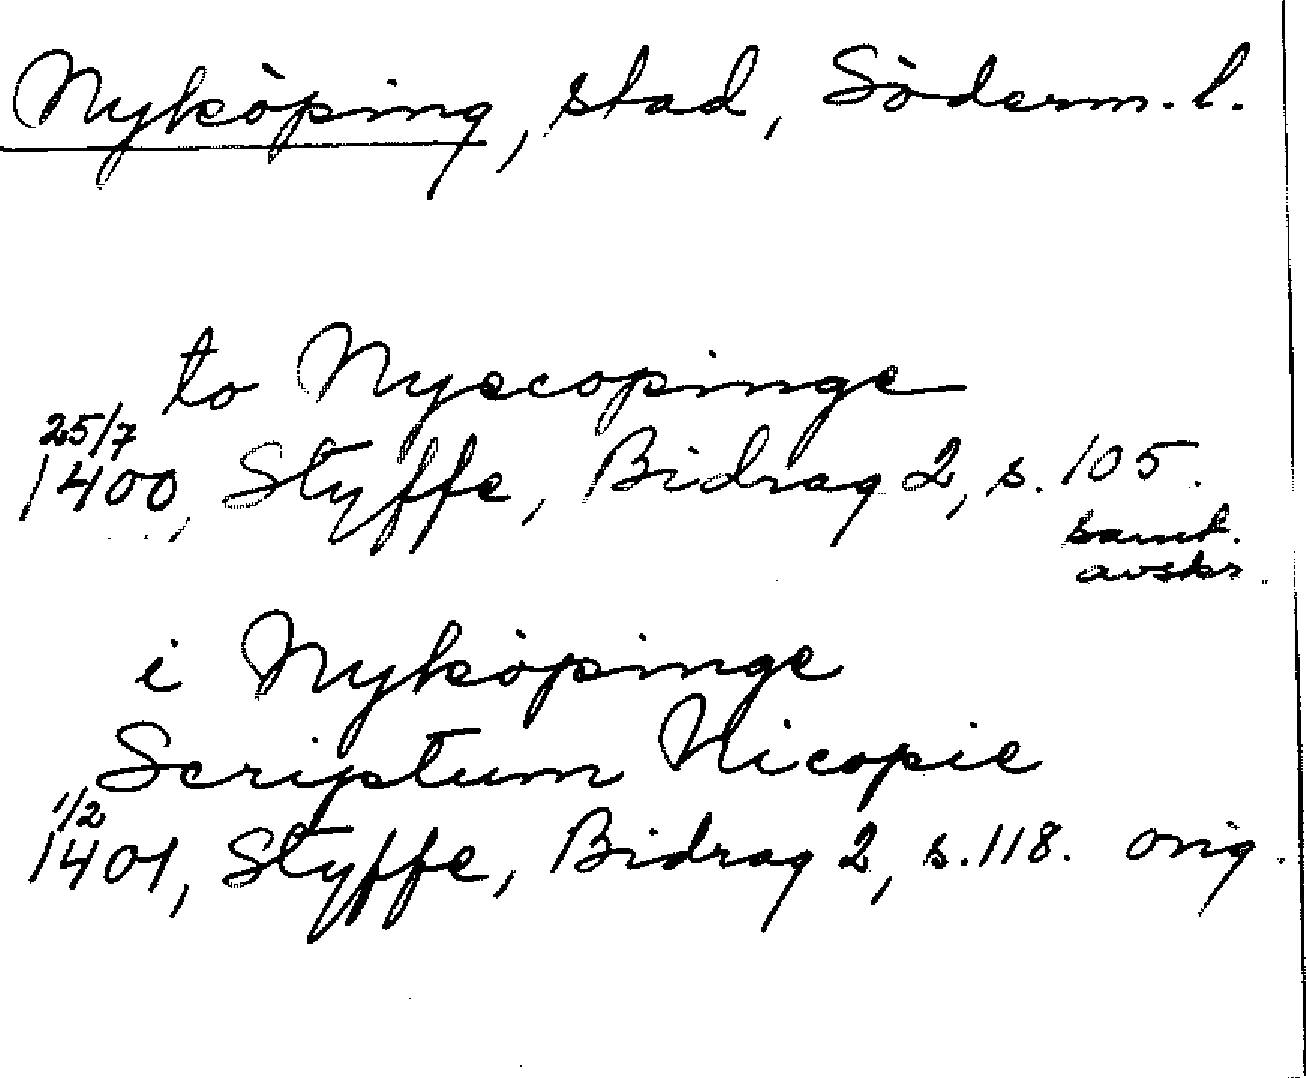 Nyköping, stad, Söderm. l.
to Nyecopinge
25/7
1400, Styffe, Bidrag 2, s. 105.
samt.
avskr.
i Nyköpinge
Scriptum Nicopie
1/2
1401, Styffe, Bidrag 2, s. 118. orig.